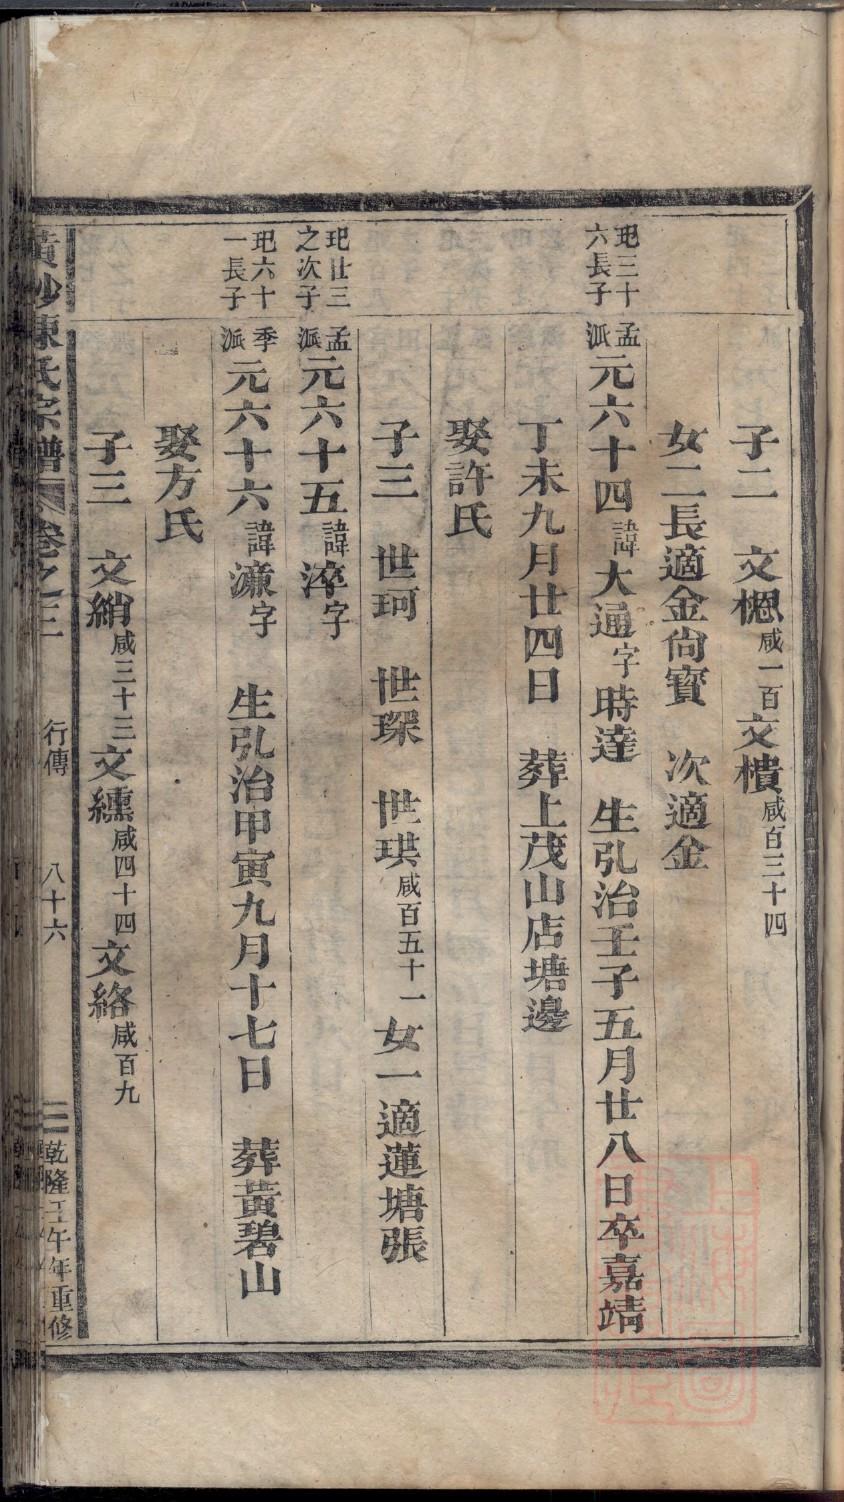 子二 文楒咸一百 文樻咸百三十四
女二 長適金尙寳 次適金
玘三十六長子
孟派 元六十四諱大通字時達 生弘治壬子五月廿八日卒嘉靖
丁未九月廿四日 葬上茂山店塘邊
娶許氏
子三 世珂 世琛 世珙咸百五十一 女一適蓮塘張
玘廿三之次子
孟派 元六十五諱淬字
玘六十一長子
季派 元六十六諱濂字 生弘治甲寅九月十七日 葬黃碧山
娶方氏
子三 文綃咸三十三 文纁咸四十四 文絡咸百九
黃沙陳氏宗譜 卷之三 行傳 八十六 乾隆壬午年重修